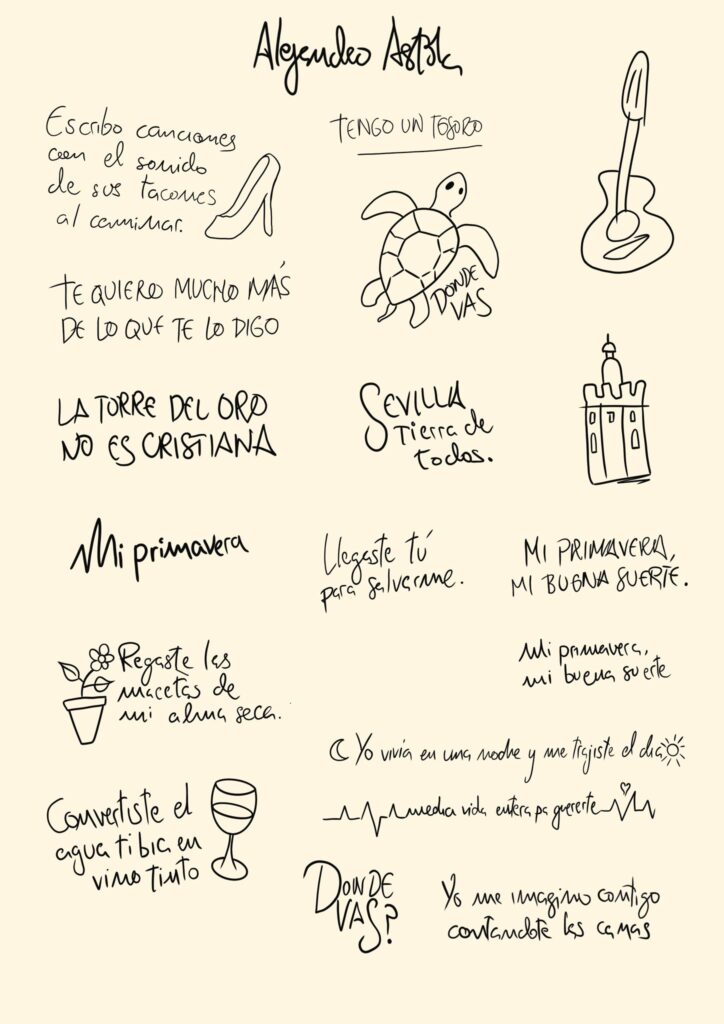 Alejandro Astola
Escribo canciones
con el sonido
de sus tacones
al caminar.
TENGO UN TESORO
DONDE
VAS
TE QUIERO MUCHO MÁS
DE LO QUE TE LO DIGO
LA TORRE DEL ORO
NO ES CRISTIANA
SEVILLA
Tierra de
todos.
Mi primavera
Llegaste tú
para salvarme.
MI PRIMAVERA,
MI BUENA SUERTE.
Mi primavera,
mi buena suerte
Regaste las
macetas de
mi alma seca.
Yo vivía en una noche y me trajiste el día
media vida entera pa quererte
Convertiste el
agua tibia en
vino tinto
DONDE
VAS?
Yo me imagino contigo
contandote las canas